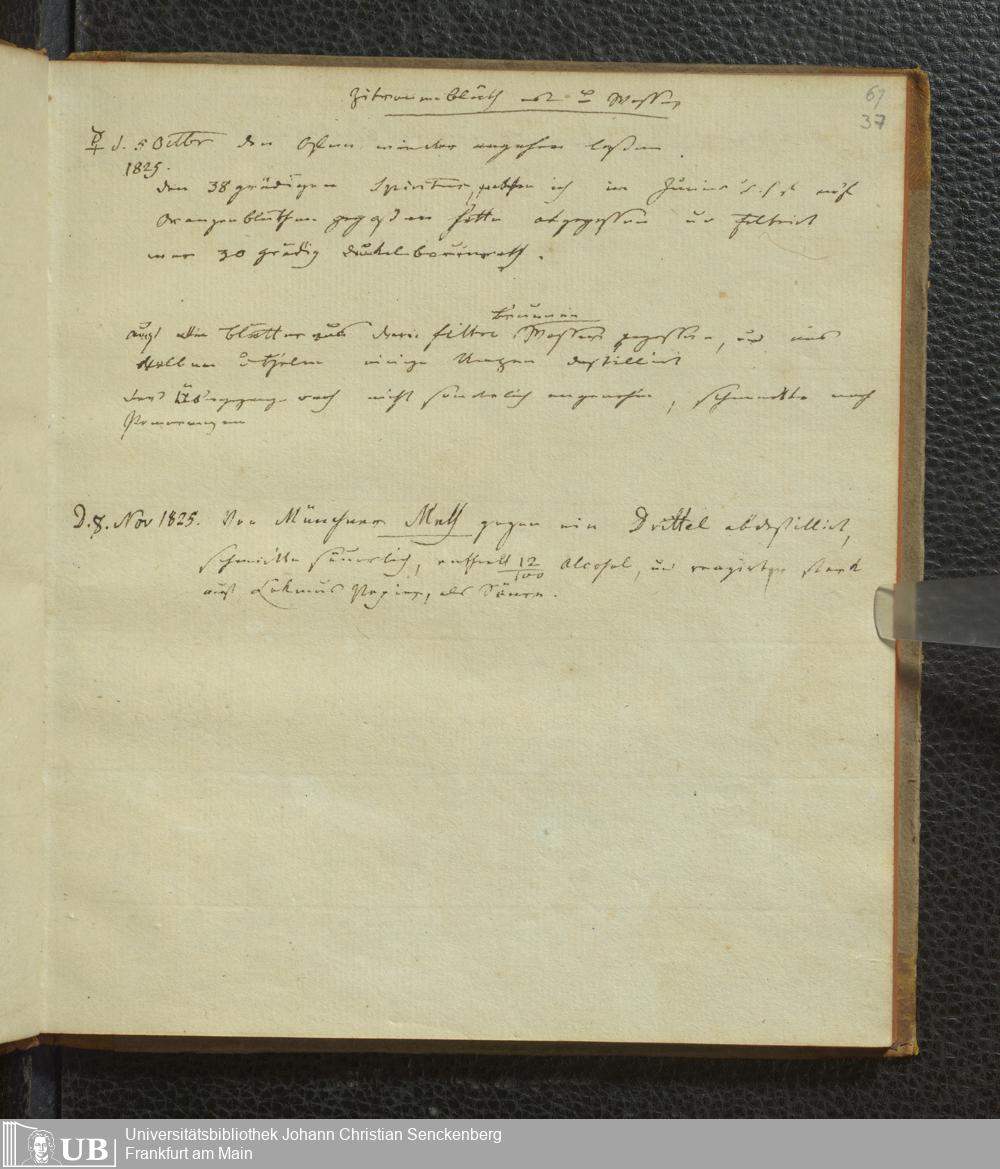 Zitronenblüth Wasser
61
37
d. 5 Octbr den Ofen wieder angehen lassen.
1825.
den 38 grädigen Spiritus, ich im Junius auf
Orangenblüthen gegossen hatte abgegossen und filtrirt
war 30 grädig dunkelbraunroth.
Brunnen
auf die Blätter drei Wasser gegossen, und
einige Unzen destillirt
roch nicht sonderlich angenehm, schmeckte nach
Pomeranzen
D. 8. Nov 1825. Von Münchner Meth gegen ein Drittel abdestillirt,
schmeckte säuerlich, enthielt 12/100 Alcohol, und reagirte stark
auf Lakmus Papier, als Säure.
UB
Universitätsbibliothek Johann Christian Senckenberg
Frankfurt am Main